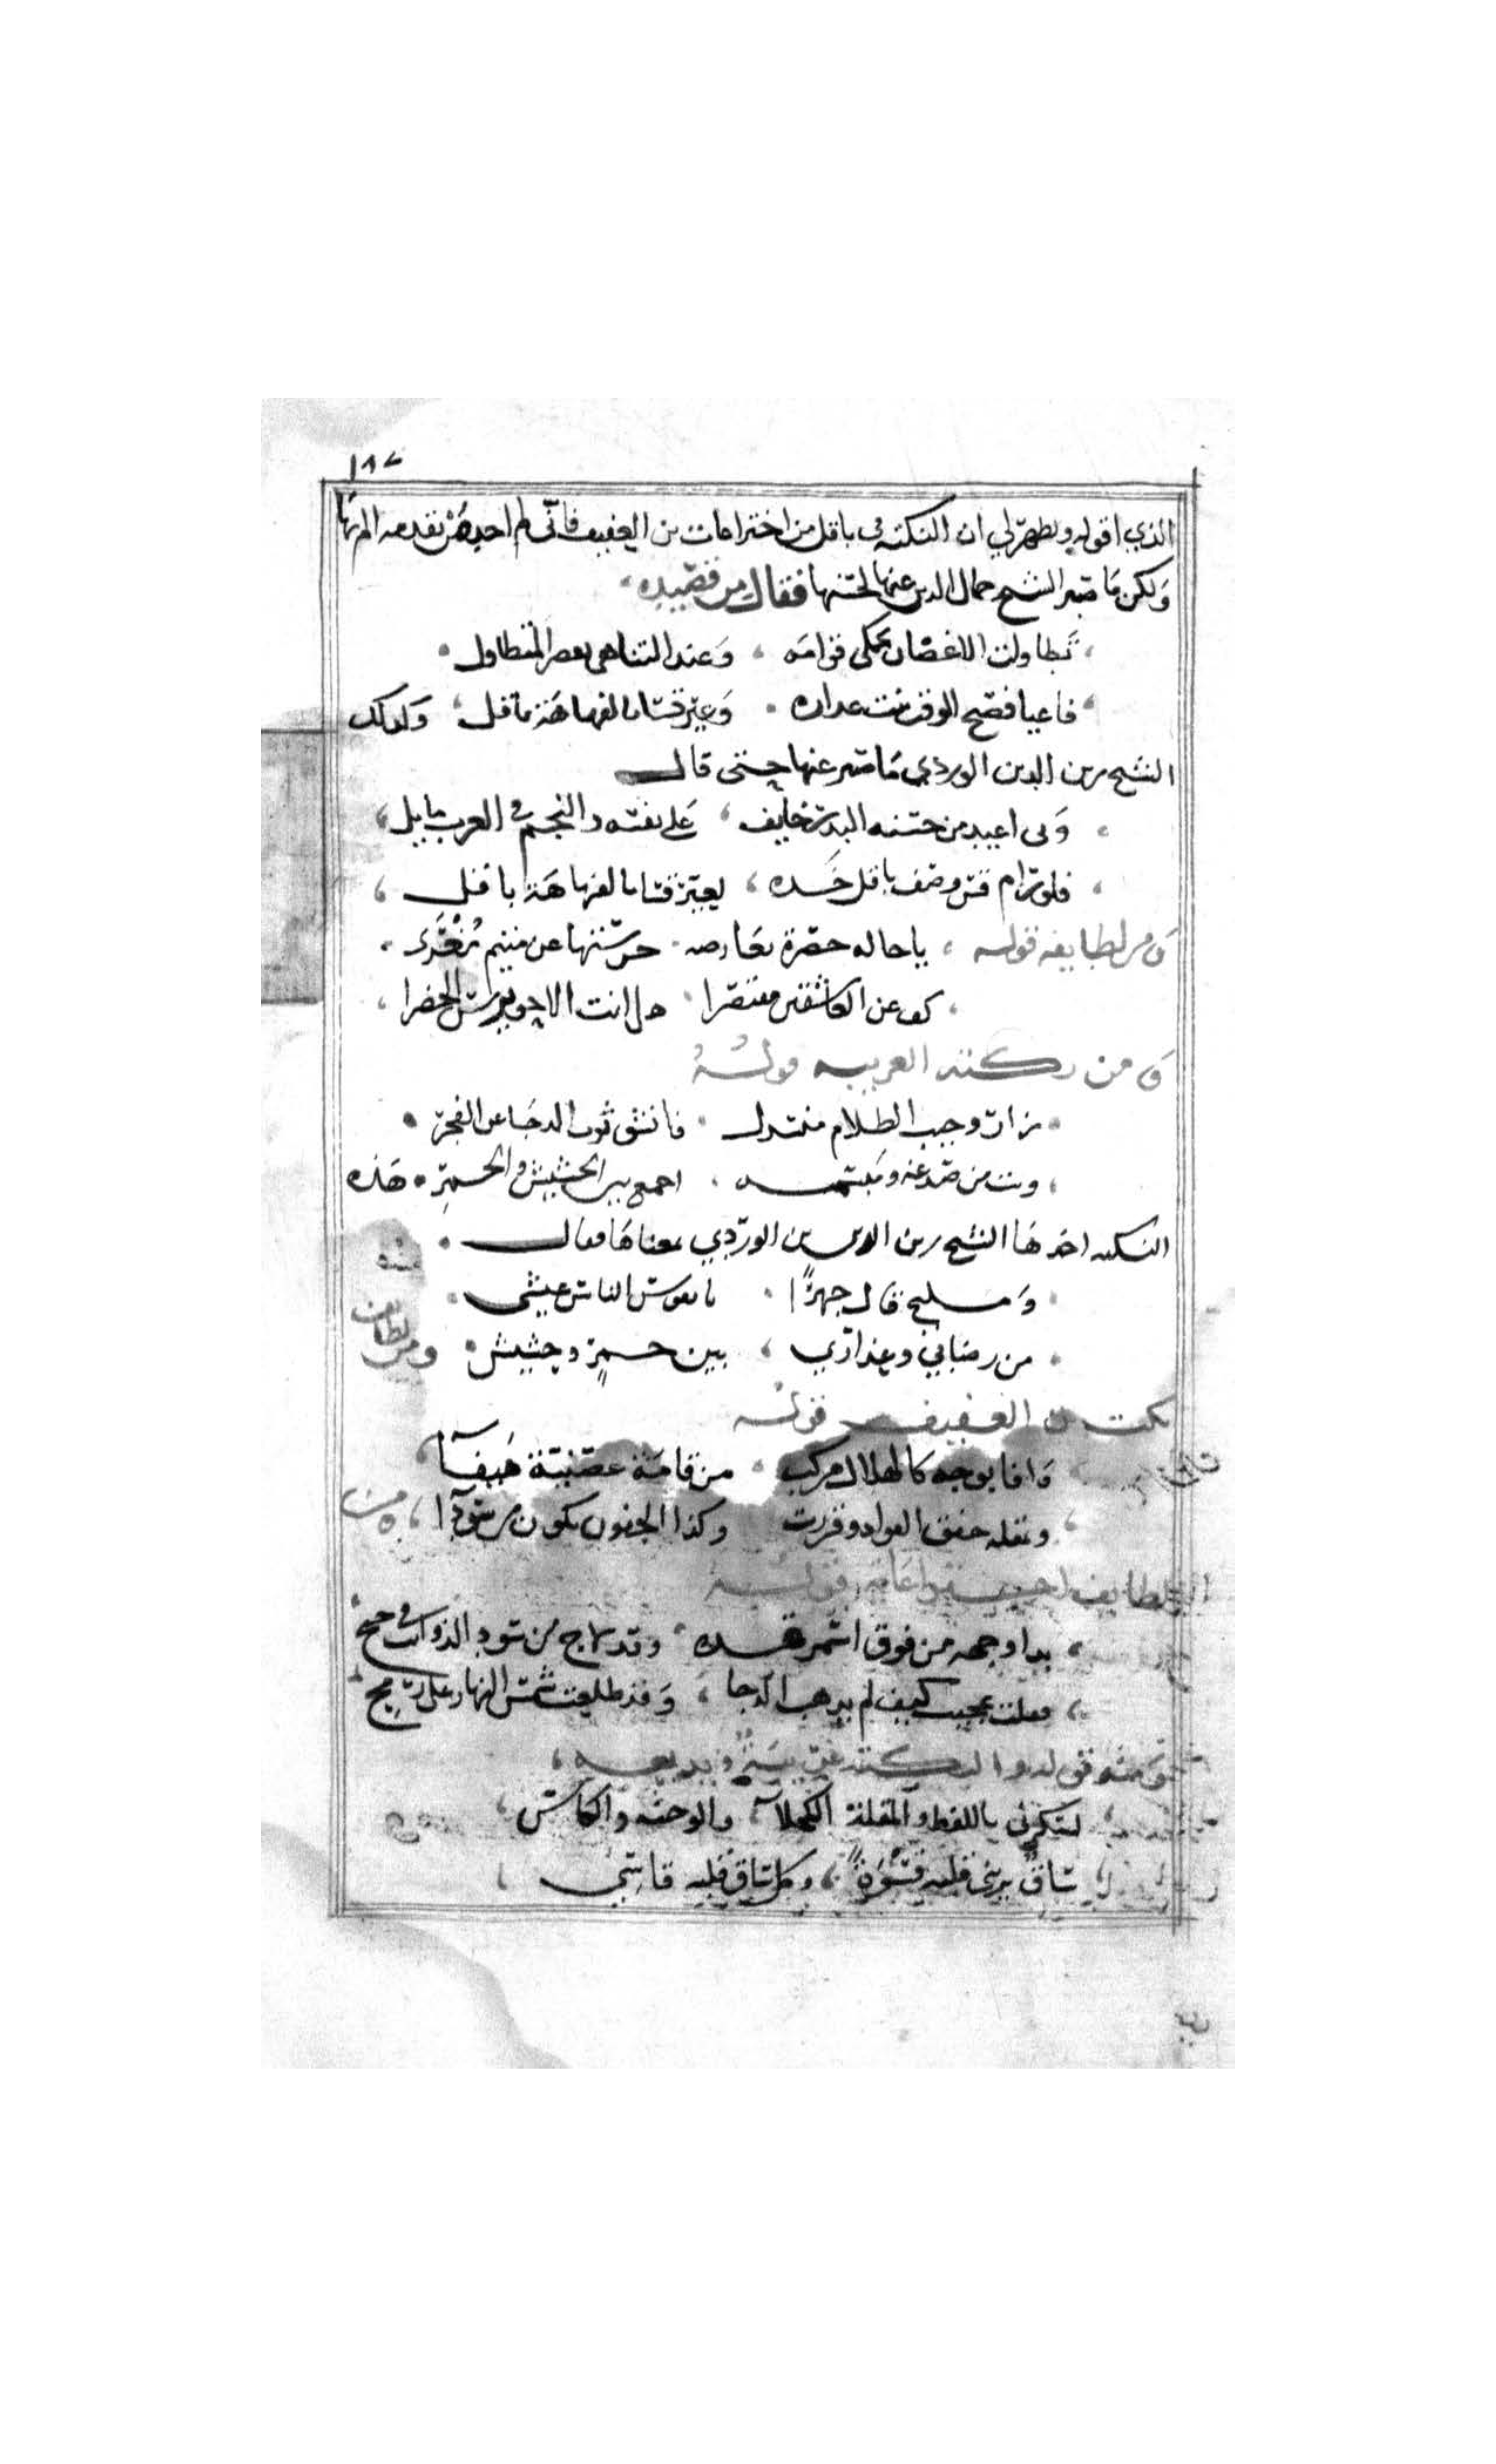 ١٨٧
الذي اقوله ويظهر لي ان النكته في باقل من اختراعات بن العفيف فاني لم احد من تقدمه اليها
ولكن ما صبر الشيخ جمال الدين عنها لحسنها فقال من قصيده
تطاولت الاغصان تحكي قوامه وعند التناهي يقصر المتطاول
فاعيا فصيح الوقت نبت عداره وعير قسا بالفهاهة باقل وكذلك
الشيخ زين الدين الوردي ما صبر عنها حتى قال
وبي اغيد من حسنه البدر خايف على نفسه والنجم في الغرب مايل
فلو رام قس وصف باقل خده لعير قسا بالفهاهة باقل
ومن لطايفه قوله ياخاله خضرة بعارضه حرستها عن متيم مغرى
كف عن العاشقين مقتصرا هل انت الا حويرس الخضرا
ومن نكته الغريبه قوله
زار وجيب الظلام منسدل فانشق ثوب الدجا عن الفجر
وبت من صدغه ومبسمه اجمع بين الحشيش والخمر هذه
النكته اخذها الشيخ زين الدين بن الوردي بمعناها فقال
ومليح قال جهرا يا نفوس الناس عيشي
من رضابي وعذاري بين خمر وحشيش ومن لطايف
نكت بن العفيف قوله
وافا بوجه كالهلال مركب من قامة غصنية هيفا
وبقله خفق الفواد وقررت وكذا الجفون تكون من سودا
بدا وجهه من فوق اسمر قده وقد لاح من سود الذوائب في جنح
فقلت عجيب كيف لم يذهب الدجا وقد طلعت شمس النهار على رمح
لسكرني باللفظ والمقلة الكحلا والوجنه والكاس
ساق يريني قلبه قسوة وكل ساق قلبه قاسي